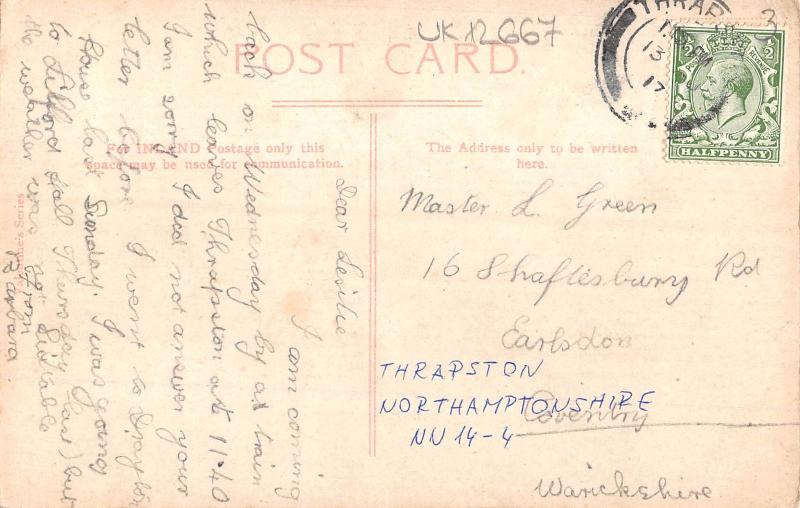 UK12667
POST CARD.
FOR INLAND Postage only this
space may be used for communication.
The Address only to be written
here.
THRAP
13
17
HALFPENNY
Dear Leslie
I am coming
back on Wednesday by a train
which leaves Thrapston at 11.40
I am sorry I did not answer your
letter before I went to Drayton
House last Sunday. I was going
to Lilford Hall Thursday last but
the weather was not suitable
From
Barbara.
Valentine's Series
Master L. Green
16 Shaftesbury Rd
Earlsdon
Coventry
Warickshire
THRAPSTON
NORTHAMPTONSHIRE
NN 14-4